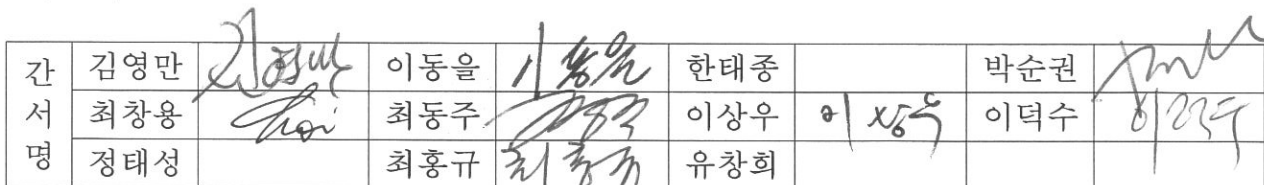 간 김영만 이동을 이동을 한태종 박순권
서 최창용 Choi 최동주 이상우 이상우 이덕수 이덕수
명 정태성 최홍규 최홍규 유창희